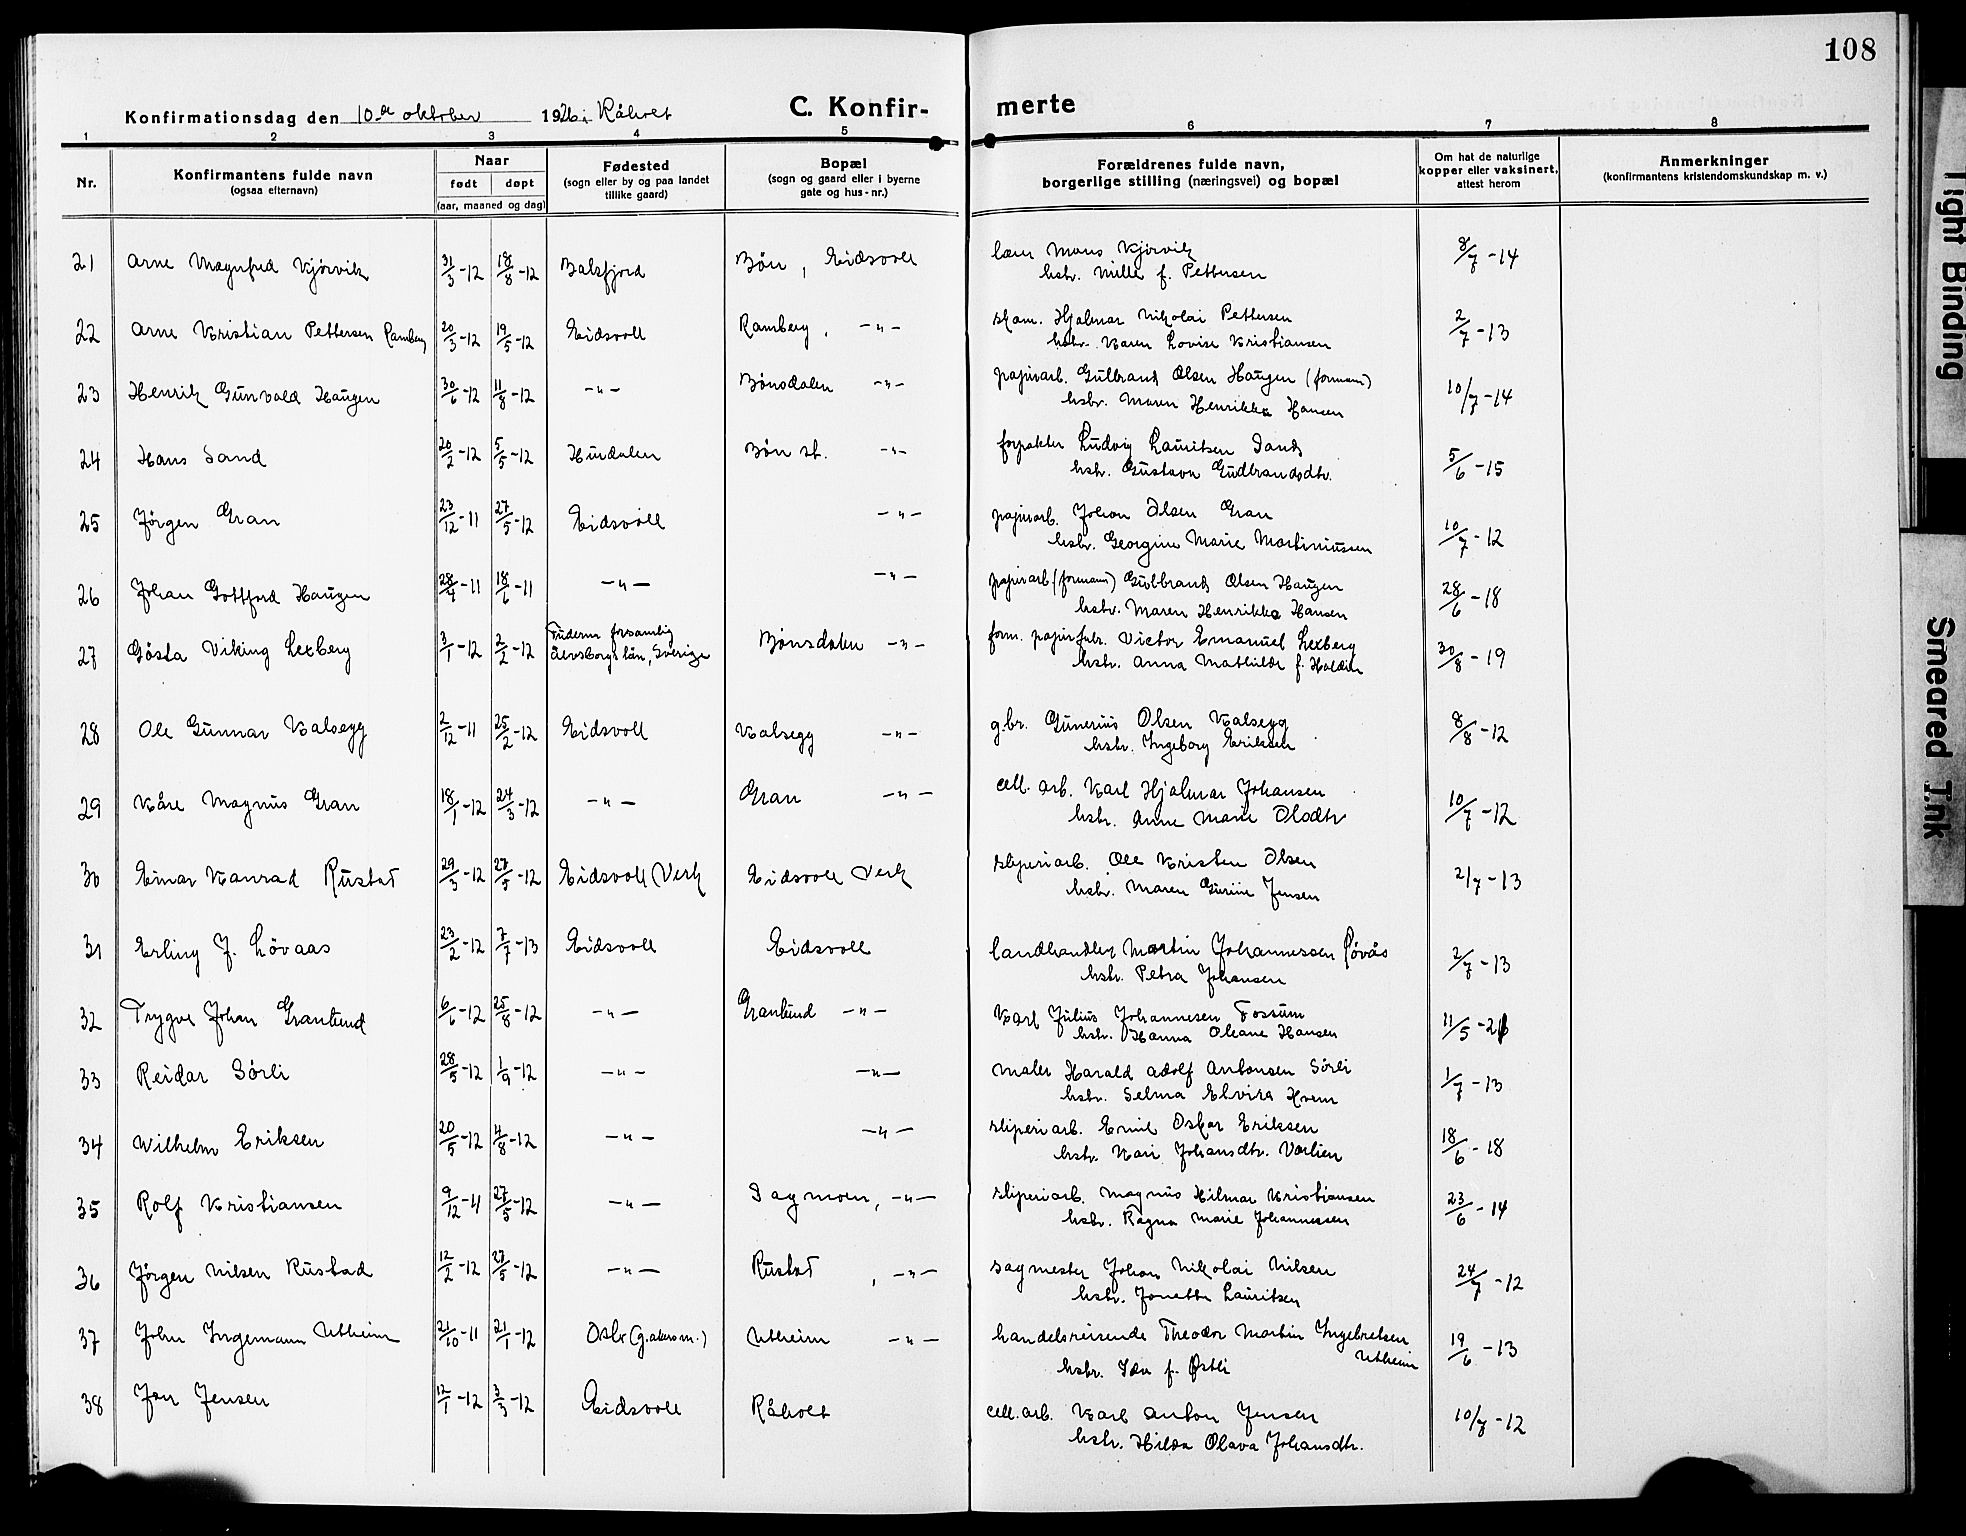 108
Konfirmationsdag den 10de oktober 1926 i Råholt
C. Konfirmerte
1 2 3 4 5 6 7 8
Nr.
Konfirmantens fulde navn
(ogsaa efternavn)
Naar
født døpt
(aar, maaned og dag)
Fødested
(sogn eller by og paa landet
tillike gaard)
Bopæl
(sogn og gaard eller i byerne
gate og hus-nr.)
Forældrenes fulde navn,
borgerlige stilling (næringsvei) og bopæl
Om hat de naturlige
kopper eller vaksinert,
attest herom
Anmerkninger
(konfirmantens kristendomskundskap m. v.)
21 Arne Magnfred Kjörvik 31/3-12 18/8-12 Balsfjord Bön, Eidsvoll lærer Mons Kjörvik 8/7-14
hstr. Mille f. Pettersen
22 Arne Kristian Pettersen Ramberg 20/3-12 19/5-12 Eidsvoll Ramberg, -"- skom. Hjalmar Nikolai Pettersen 2/7-13
hstr. Karen Lovise Kristiansen
23 Henrik Gunvald Haugen 30/6-12 11/8-12 -"- Bönsdalen -"- papirarb. Gulbrand Olsen Haugen (formann) 10/7-14
hstr. Maren Henrikka Hansen
24 Hans Sand 20/2-12 5/5-12 Hurdalen Bön st. -"- forpakter Ludvig Lauritsen Sand 5/6-15
hstr. Gustava Gudbrandsdtr.
25 Jörgen Gran 23/12-11 27/5-12 Eidsvoll -"- papirarb. Johan Olsen Gran 10/7-12
hstr. Georgine Marie Martiniussen
26 Johan Gottfred Haugen 28/4-11 18/6-11 -"- -"- papirarb (formann) Gulbrand Olsen Haugen 28/6-18
hstr. Maren Henrikka Hansen
27 Gösta Viking Lexberg 3/1-12 2/2-12 forsamling Bönsdalen -"- form. papirfabr. Victor Emanuel Lexberg 30/8-19
län, Sverige hstr. Anna Mathilde f. Holdin
28 Ole Gunnar Kalsegg 2/12-11 25/2-12 Eidsvoll Kalsegg -"- g.br. Gunerius Olsen Kalsegg 8/8-12
hstr. Ingeborg Eriksen
29 Kåre Magnus Gran 18/1-12 24/3-12 -"- Gran -"- cell. arb. Karl Hjalmar Johansen 10/7-12
hstr. Anne Marie Olsdtr
30 Einar Konrad Rustad 29/3-12 27/5-12 Eidsvoll Verk Eidsvoll Verk sliperiarb. Ole Kristen Olsen 2/7-13
hstr. Maren Gurine Jensen
31 Erling J. Lövaas 23/2-12 7/7-13 Eidsvoll Eidsvoll landhandler Martin Johannessen Lövås 2/7-13
hstr. Petra Johansen
32 Trygve Johan Granlund 6/6-12 25/8-12 -"- Granlund -"- Karl Julius Johannesen Fossum 11/5-21
hstr. Hanna Oleane Hansen
33 Reidar Sörli 28/5-12 1/9-12 -"- -"- maler Harald Adolf Antonsen Sörli 1/7-13
hstr. Selma Elvira Hvem
34 Wilhelm Eriksen 20/5-12 4/8-12 -"- -"- sliperiarb. Emil Oskar Eriksen 18/6-18
hstr. Kari Johansdtr. Varlien
35 Rolf Kristiansen 9/12-11 27/5-12 -"- Dagmoen, -"- sliperiarb. Magnus Hilmar Kristiansen 23/6-14
hstr. Ragna Marie Johannessen
36 Jörgen Nilsen Rustad 12/2-12 27/5-12 -"- Rustad, -"- sagmester Johan Nikolai Nilsen 24/7-12
hstr. Jonette Lauritsen
37 John Ingemann Utheim 21/10-11 21/1-12 Oslo (g.akers m.) Utheim -"- handelsreisende Theodor Martin Ingebretsen 19/6-13
Utheim
hstr. Ida f. Östli
38 Jan Jensen 12/1-12 3/3-12 Eidsvoll Råholt cell. arb. Karl Anton Jensen 10/7-12
hstr. Hilda Olava Johansdtr.
Tight Binding
Smeared Ink